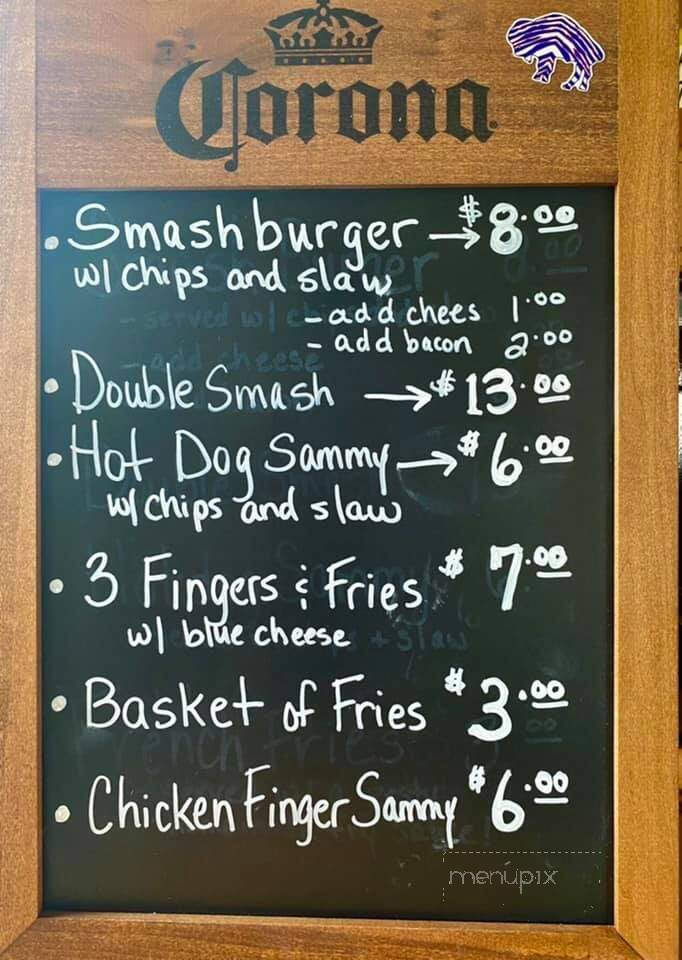 Corona
• Smashburger → $8.00
w/ chips and slaw
- add chees 1.00
- add bacon 2.00
• Double Smash → $13.00
• Hot Dog Sammy → $6.00
w/ chips and slaw
• 3 Fingers & Fries $7.00
w/ blue cheese
• Basket of Fries $3.00
• Chicken Finger Sammy $6.00
menupix